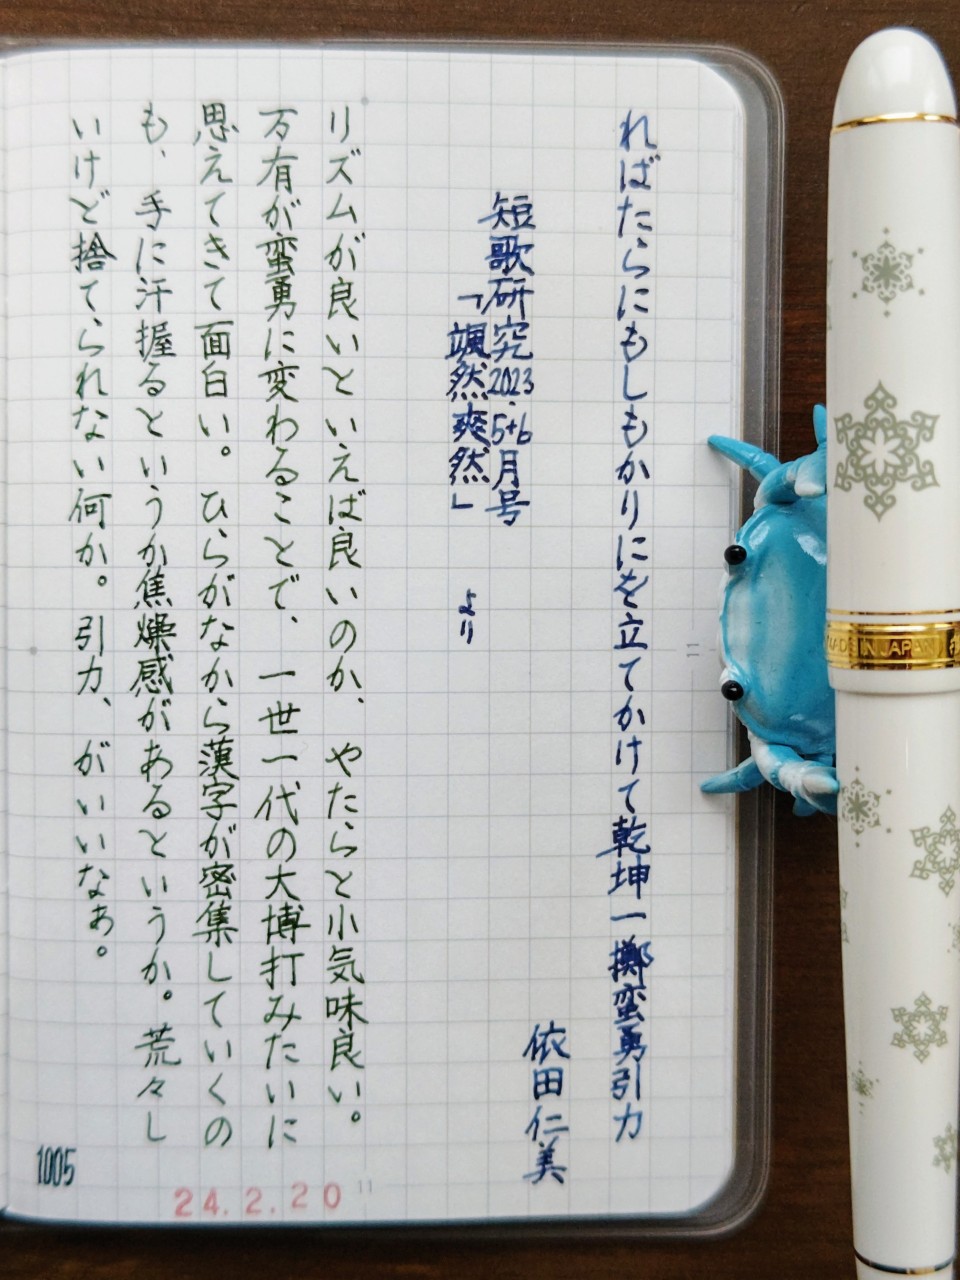 ればたらにもしもかりにを立てかけて乾坤一擲蛮勇引力
依田仁美
短歌研究2023.5+6月号
「颯然爽然」
より
リズムが良いといえば良いのか、やたらと小気味良い。
万有が蛮勇に変わることで、一世一代の大博打みたいに
思えてきて面白い。ひらがなから漢字が密集していくの
も、手に汗握るというか焦燥感があるというか。荒々し
いけど捨てられない何か。引力、がいいなぁ。
1005
24.2.20
MADE IN JAPAN